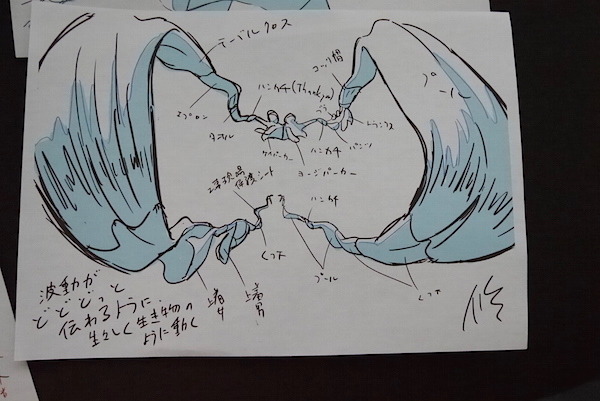 テーブルクロス
エプロン
ハンカチ(Thankyou)
タオル
コック帽
プール
ブラ
トランクス
ハンカチ
パンツ
ヨージパーカー
保護シート
ハンカチ
くつ下
プール
くつ下
波動が
どどどっと
伝わるように
生々しく生き物の
ように動く